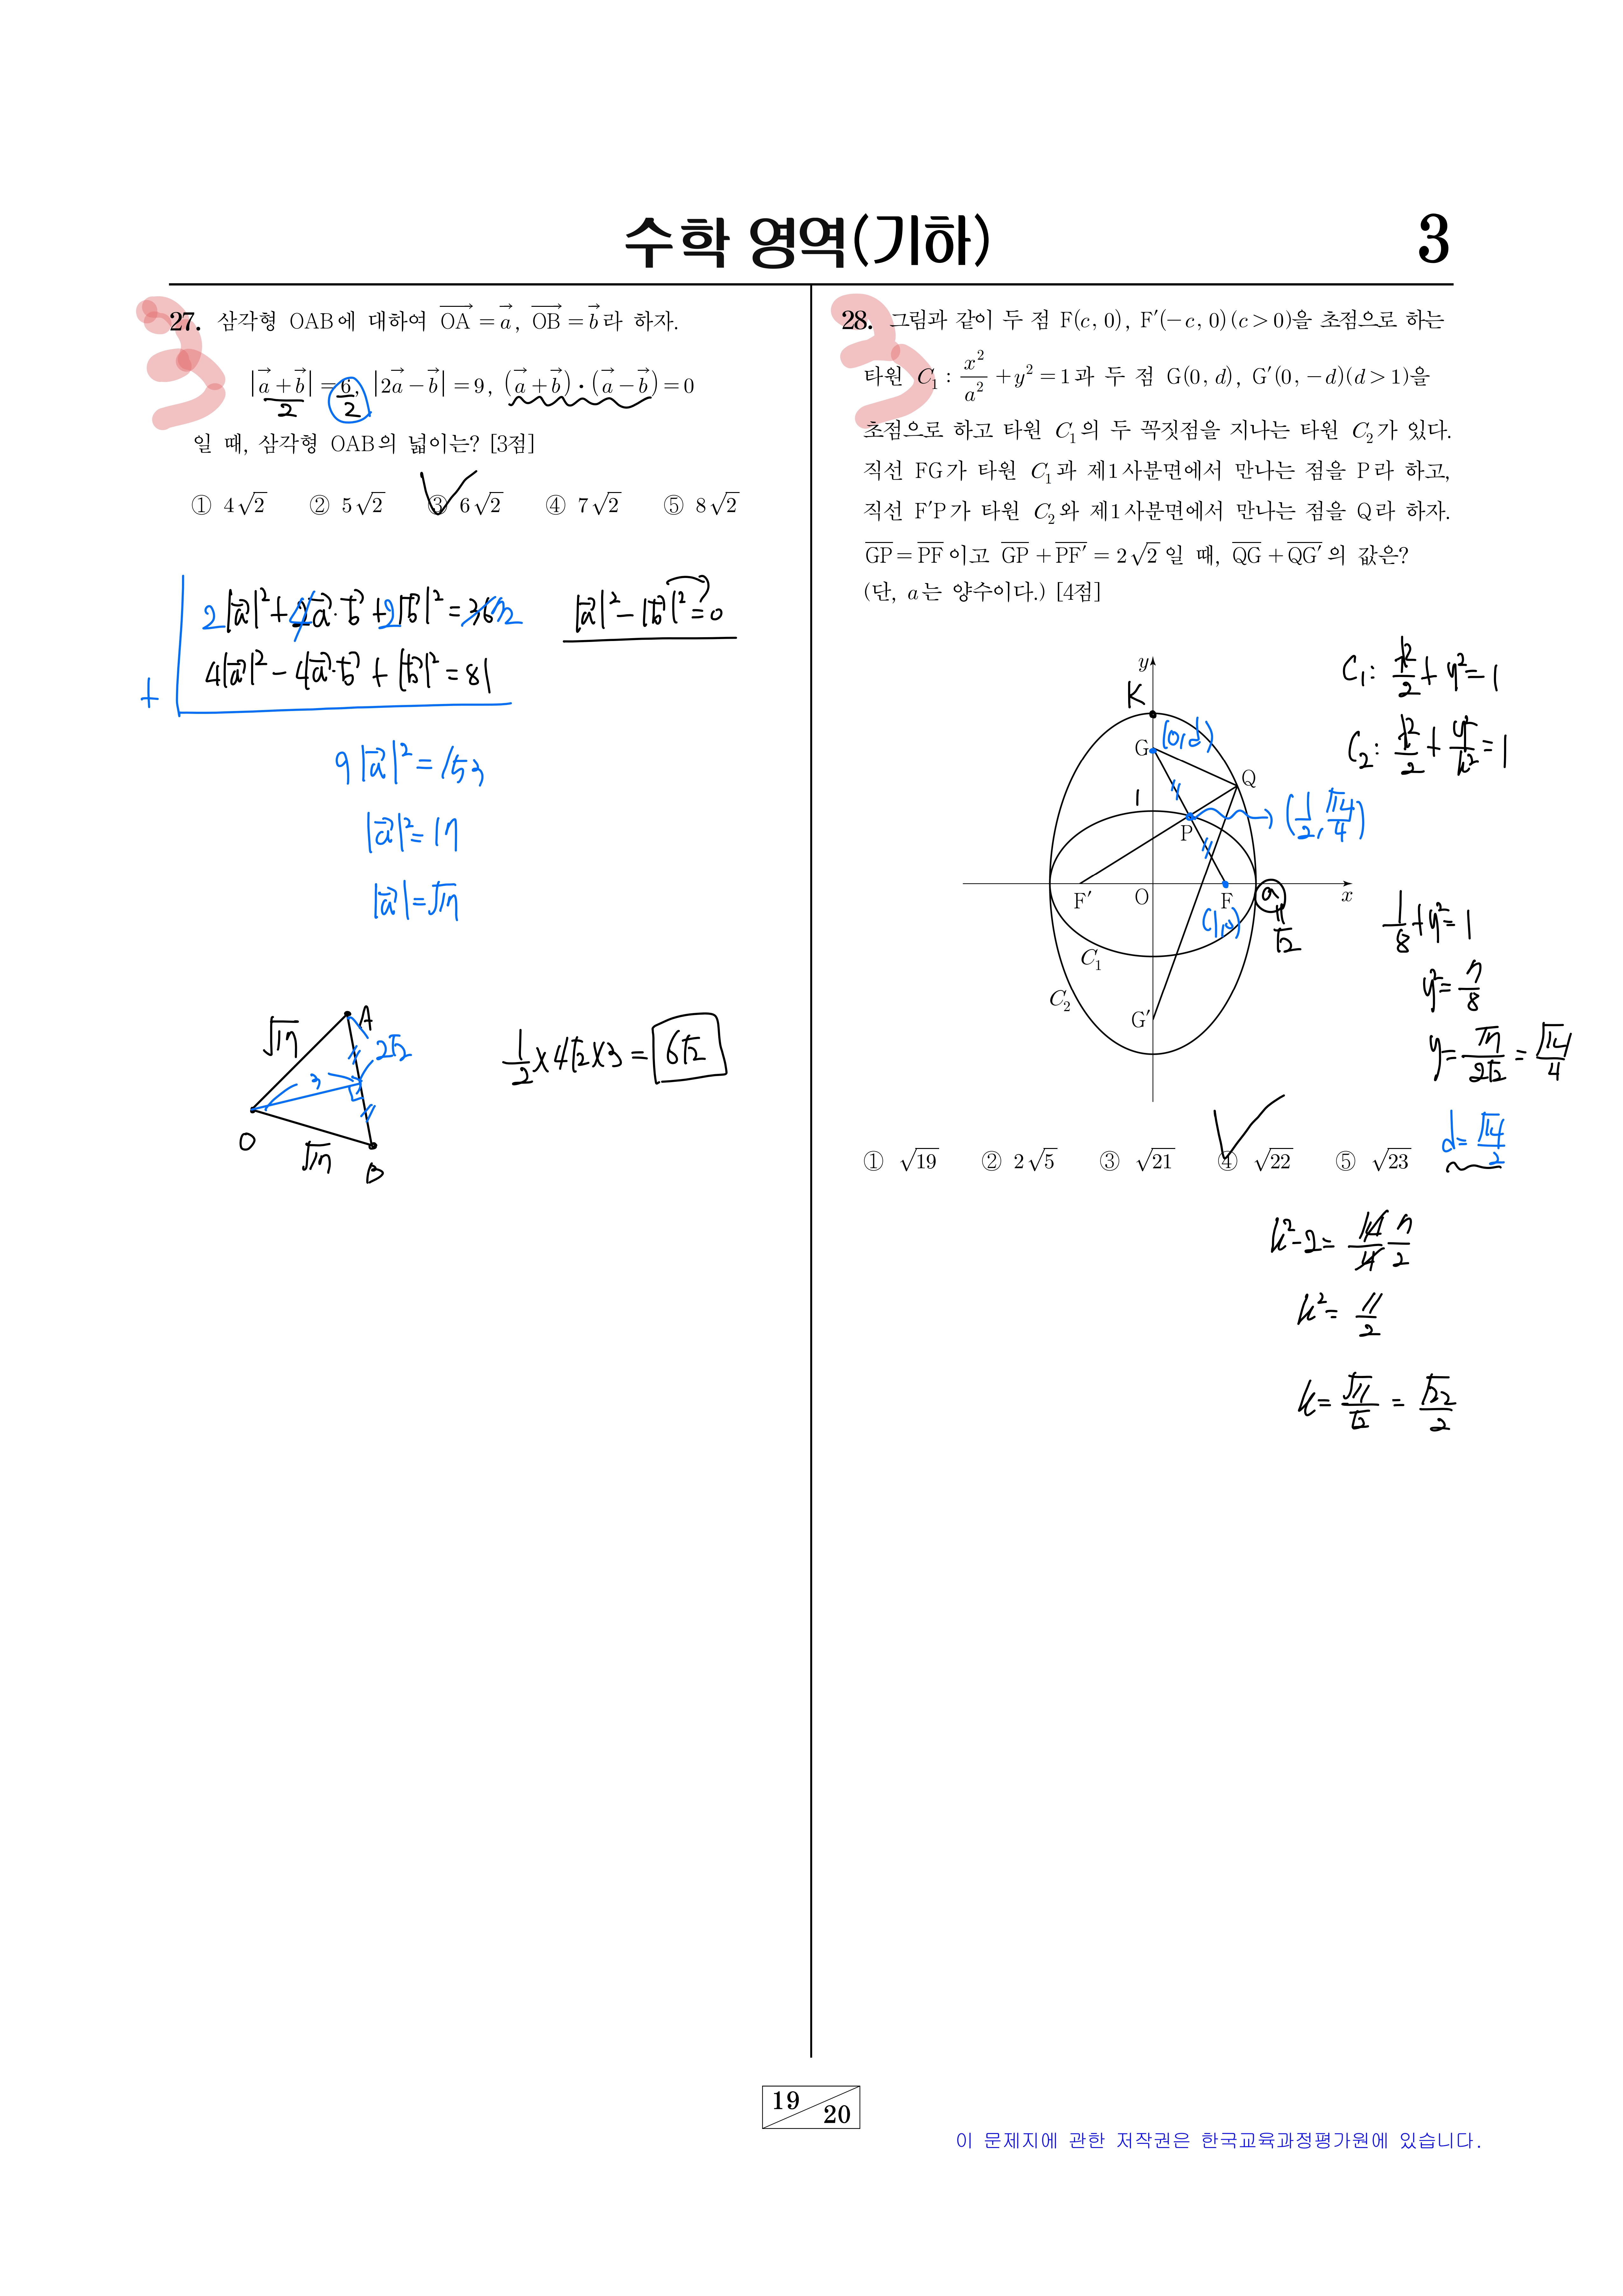 수학 영역(기하)
3
27. 삼각형 OAB에 대하여 $\overrightarrow{OA}=\vec{a}$, $\overrightarrow{OB}=\vec{b}$라 하자.
$|\vec{a}+\vec{b}|=6$, $|2\vec{a}-\vec{b}|=9$, $(\vec{a}+\vec{b})\cdot(\vec{a}-\vec{b})=0$
2 2
일 때, 삼각형 OAB의 넓이는? [3점]
① 4√2 ② 5√2 ③ 6√2 ④ 7√2 ⑤ 8√2
$2|\vec{a}|^2+4\vec{a}\cdot\vec{b}+2|\vec{b}|^2=72$
$|\vec{a}|^2-|\vec{b}|^2=0$
$4|\vec{a}|^2-4\vec{a}\cdot\vec{b}+|\vec{b}|^2=81$
+
$9|\vec{a}|^2=153$
$|\vec{a}|^2=17$
$|\vec{a}|=\sqrt{17}$
√17 A 2√2
3
O √17 B
$\frac{1}{2}\times4\sqrt{2}\times3=6\sqrt{2}$
28. 그림과 같이 두 점 F(c, 0), F′(−c, 0)(c>0)을 초점으로 하는
타원 $C_1:\frac{x^2}{a^2}+y^2=1$과 두 점 G(0, d), G′(0, −d)(d>1)을
초점으로 하고 타원 $C_1$의 두 꼭짓점을 지나는 타원 $C_2$가 있다.
직선 FG가 타원 $C_1$과 제1사분면에서 만나는 점을 P라 하고,
직선 F′P가 타원 $C_2$와 제1사분면에서 만나는 점을 Q라 하자.
$\overline{GP}=\overline{PF}$이고 $\overline{GP}+\overline{PF'}=2\sqrt{2}$일 때, $\overline{QG}+\overline{QG'}$의 값은?
(단, a는 양수이다.) [4점]
$C_1:\frac{x^2}{2}+y^2=1$
$C_2:\frac{x^2}{2}+\frac{y^2}{k^2}=1$
y
K
G (0,d)
Q
1
P $(\frac{1}{2},\frac{\sqrt{14}}{4})$
F′ O F a x
(1,0) = √2
$C_1$
$C_2$
G′
$\frac{1}{8}+y^2=1$
$y^2=\frac{7}{8}$
$y=\frac{\sqrt{7}}{2\sqrt{2}}=\frac{\sqrt{14}}{4}$
$d=\frac{\sqrt{14}}{2}$
① √19 ② 2√5 ③ √21 ④ √22 ⑤ √23
$k^2-2=\frac{14}{4}\frac{7}{2}$
$k^2=\frac{11}{2}$
$k=\frac{\sqrt{11}}{\sqrt{2}}=\frac{\sqrt{22}}{2}$
19
20
이 문제지에 관한 저작권은 한국교육과정평가원에 있습니다.